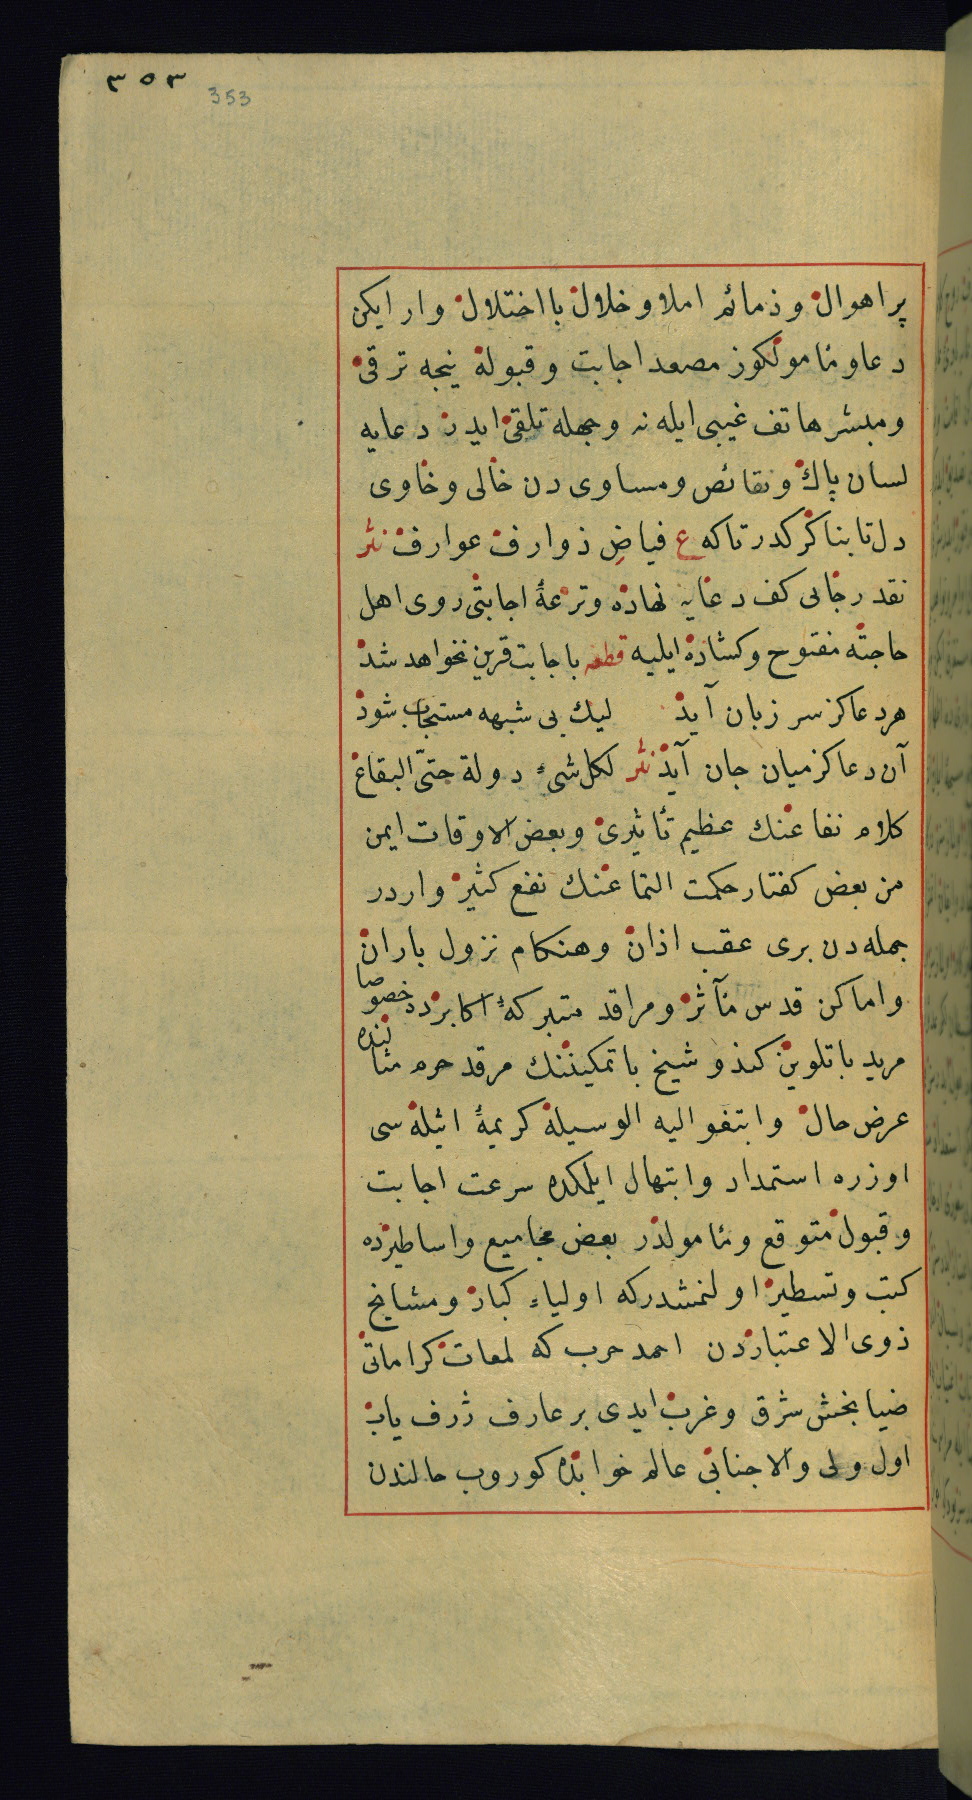 ٣٥٣
353
پر اهوال و ذمائم املا و خلال با اختلال وار ایکن
دعا و مأمولکوز مصعد اجابت و قبوله نیجه ترقی
و مبشر هاتف غیبی ایله نه وجهله تلقی ایدر دعایه
لسان پاك و نقائص و مساوی دن خالی و خاوی
دل تابناك کرکدر تاکه ع فیاض ذوارف عوارف نثر
نقد رجایی کف دعایه نهاده و ترعهٔ اجابتی روی اهل
حاجته مفتوح و کشاده ایلیه قطعه با جابت قرین نخواهد شد
هر دعا کز سر زبان آید لیك بی شبهه مستجاب شود
آن دعا کز میان جان آید نثر لکل شیء دولة حتّی البقاع
کلام نفاعنك عظیم تأثیری و بعض الاوقات ایمن
من بعض کفتار حکمت التماعنك نفع کثیر واردر
جمله دن بری عقب اذان و هنکام نزول باران
و اماکن قدس مآثر و مراقد متبرکهٔ اکابرده خصوصا
مرید با تلوین کندو شیخ با تمکیننك مرقد حرم مثالنده
عرض حال و ابتغوا الیه الوسیلة کریمهٔ اثیله سی
اوزره استمداد و ابتهال ایلمکده سرعت اجابت
و قبول متوقع و مأمولدر بعض مجامیع و اساطیرده
کتب و تسطیر اولنمشدر که اولیاء کبار و مشایخ
ذوی الاعتباردن احمد حرب که لمعات کراماتی
ضیا بخش شرق و غرب ایدی بر عارف ژرف یاب
اول ولی والا جنابی عالم خوابده کوروب حالندن